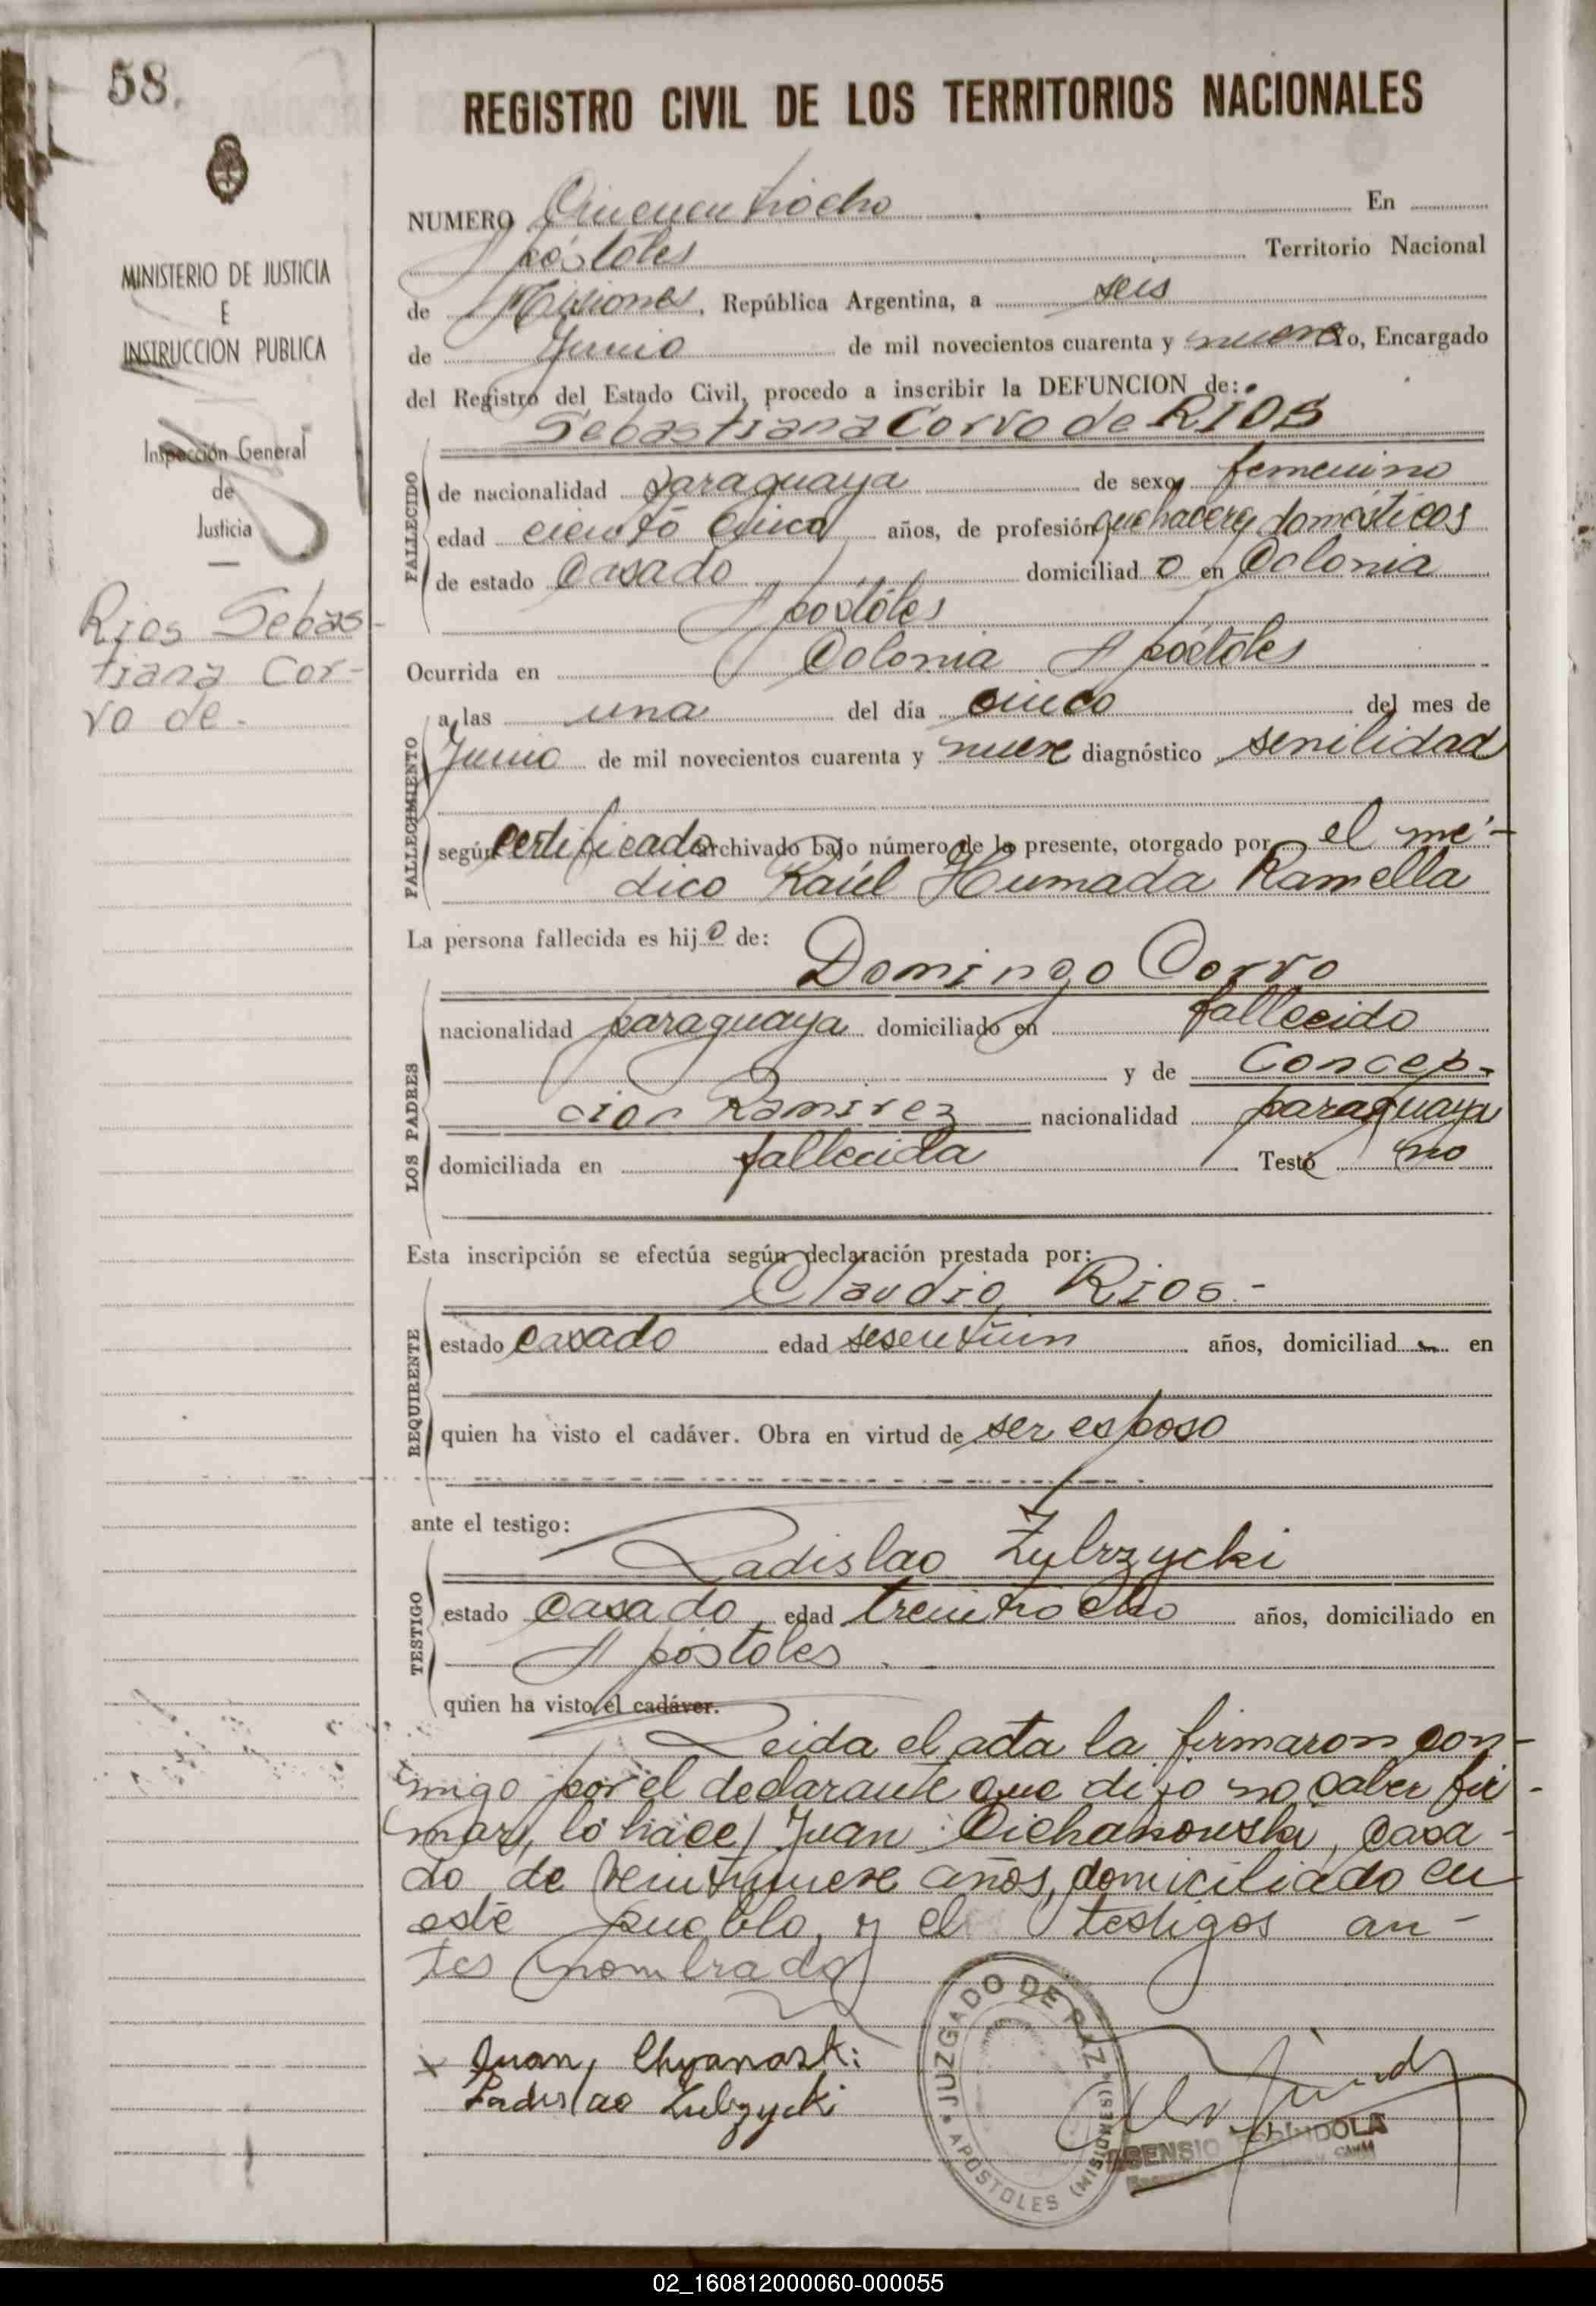 58.
REGISTRO CIVIL DE LOS TERRITORIOS NACIONALES
MINISTERIO DE JUSTICIA
E
INSTRUCCION PUBLICA
Inspección General
de
Justicia
Rios Sebas-
tiana Cor-
vo de.
NUMERO Cincuentiocho . En
Apóstóles Territorio Nacional
de Misiones, República Argentina, a seis
de Junio de mil novecientos cuarenta y nueve Yo, Encargado
del Registro del Estado Civil, procedo a inscribir la DEFUNCION de:
Sebastiana Corvo de RIOS
FALLECIDO
de nacionalidad paraguaya de sexo femenino
edad ciento cinco años, de profesión quehaceres domésticos
de estado Casado domiciliad o en Colonia
Apóstóles
Ocurrida en Colonia Apóstoles
FALLECIMIENTO
a las una del día cinco del mes de
Junio de mil novecientos cuarenta y nueve diagnóstico senilidad
según certificado archivado bajo número de la presente, otorgado por el mé-
dico Raúl Humada Ramella
La persona fallecida es hij o de:
LOS PADRES
Domingo Corvo
nacionalidad paraguaya domiciliado en fallecido
y de Concep-
cion Ramirez nacionalidad paraguaya
domiciliada en fallecida Testó no
Esta inscripción se efectúa según declaración prestada por:
REQUIRENTE
Claudio Rios.-
estado casado edad sesentiún años, domiciliad en
quien ha visto el cadáver. Obra en virtud de ser esposo
ante el testigo:
TESTIGO
Ladislao Zubrzycki
estado Casado edad treintiocho años, domiciliado en
Apóstoles
quien ha visto el cadáver.
Leida el acta la firmaron con-
migo por el declarante que dijo no saber fir-
mar, lo hace Juan Cichanowski, casa-
do de veintinueve años, domiciliado en
este pueblo, y el testigos an-
tes nombrado
x Juan,
Ladislao Zubzycki
JUZGADO DE PAZ
APÓSTOLES (MISIONES)
ASENSIO
02_160812000060-000055